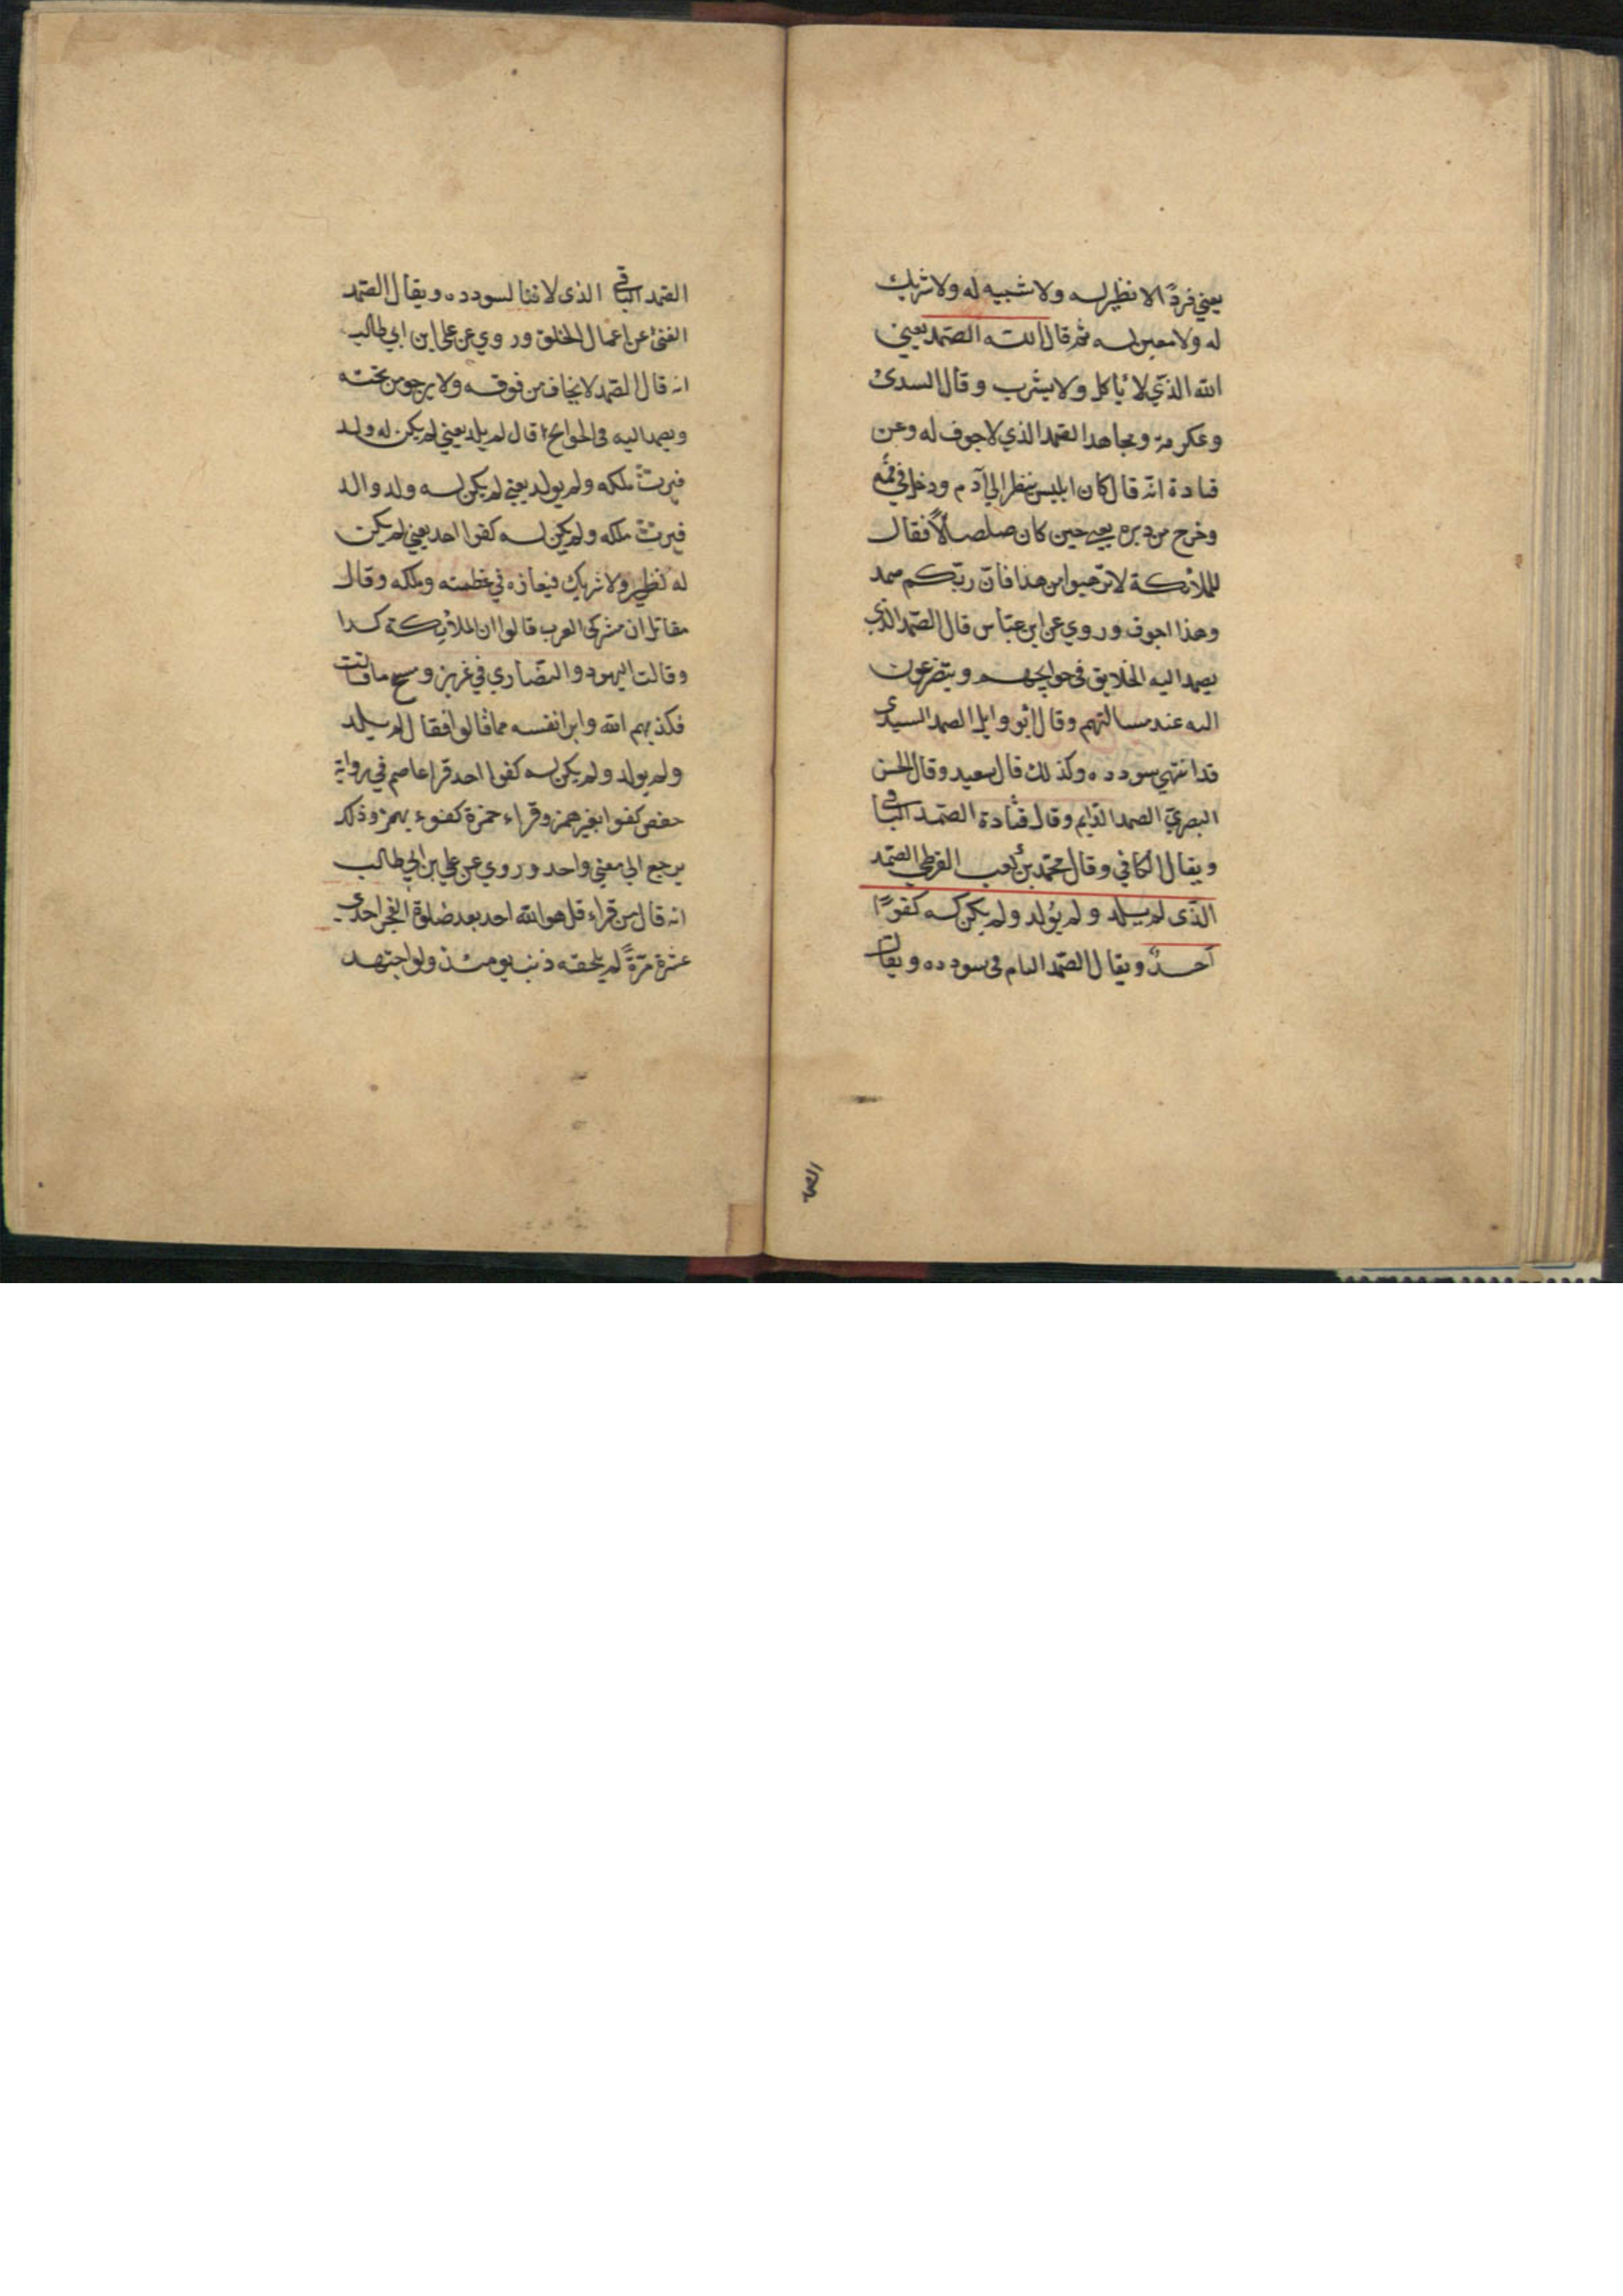 يعني فردًا لا نظير له ولا شبيه له ولا شريك
له ولا معين له ثم قال الله الصمد يعني
الله الذي لا يأكل ولا يشرب وقال السدي
وعكرمة ومجاهد الصمد الذي لا جوف له وعن
قتادة انه قال كان ابليس ينظر الي آدم ودخل في فمه
وخرج من دبره يعني حين كان صلصالاً فقال
للملائكة لا ترهبوا من هذا فان ربكم صمد
وهذا اجوف وروي عن ابن عباس قال الصمد الذي
يصمد اليه الخلايق في حوايجهم ويتضرعون
اليه عند مسالتهم وقال ابو وايل الصمد السيد الذي
قد انتهي سودده وكذلك قال سعيد وقال الحسن
البصري الصمد الدايم وقال قتادة الصمد الباقي
ويقال الكافي وقال محمد بن كعب القرظي الصمد
الذي لم يلد ولم يولد ولم يكن له كفوًا
أحدٌ ويقال الصمد التام في سودده ويقال
الصمد
الصمد الباقي الذي لا فنا لسودده ويقال الصمد
الغني عن اعمال الخلق وروي عن علي ابن ابي طالب
انه قال الصمد لا يخاف من فوقه ولا يرجو من تحته
ويصمد اليه في الحوايج قال لم يلد يعني لم يكن له ولد
فيرث ملكه ولم يولد يعني لم يكن له ولد والد
فيرث ملكه ولم يكن له كفوا احد يعني لم يكن
له نظير ولا شريك فيعازه في عظمته وملكه وقال
مقاتل ان مشركي العرب قالوا ان الملائكة كذا
وقالت اليهود والنصاري في عزيز ومسيح ما قالت
فكذبهم الله وابرا نفسه مما قالوا فقال لم يلد
ولم يولد ولم يكن له كفوا احد قرا عاصم في رواية
حفص كفوا بغير همز وقراء حمزة كفوء بهمز وذلك
يرجع الي معني واحد وروي عن علي بن ابي طالب
انه قال من قراء قل هو الله احد بعد صلوة الفجر احدي
عشرة مرّةً لم يلحقه ذنب يومئذ ولو اجتهد